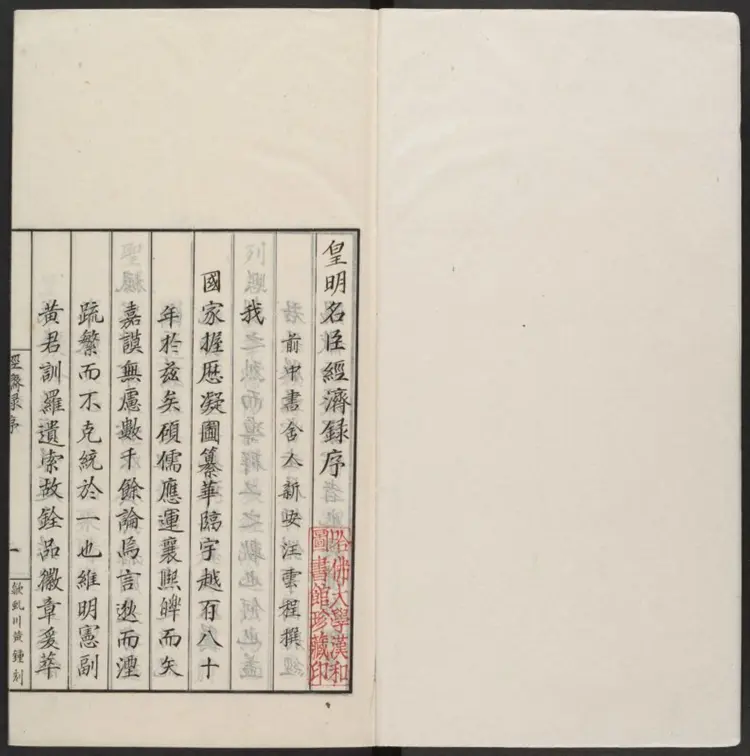 皇明名臣經濟録序
前中書舍人新安汪雲程撰
我
國家握歷凝圖纂華臨宇越百八十
年於茲矣碩儒應運襄熙皡而矢
嘉謨無慮數千餘論焉言散而湮
疏繁而不克統於一也維明憲副
黃君訓羅遺索故銓品徽章爰萃
經濟录序
一
歙虬川黃鍾刻
哈佛大學漢和
圖書館珍藏印